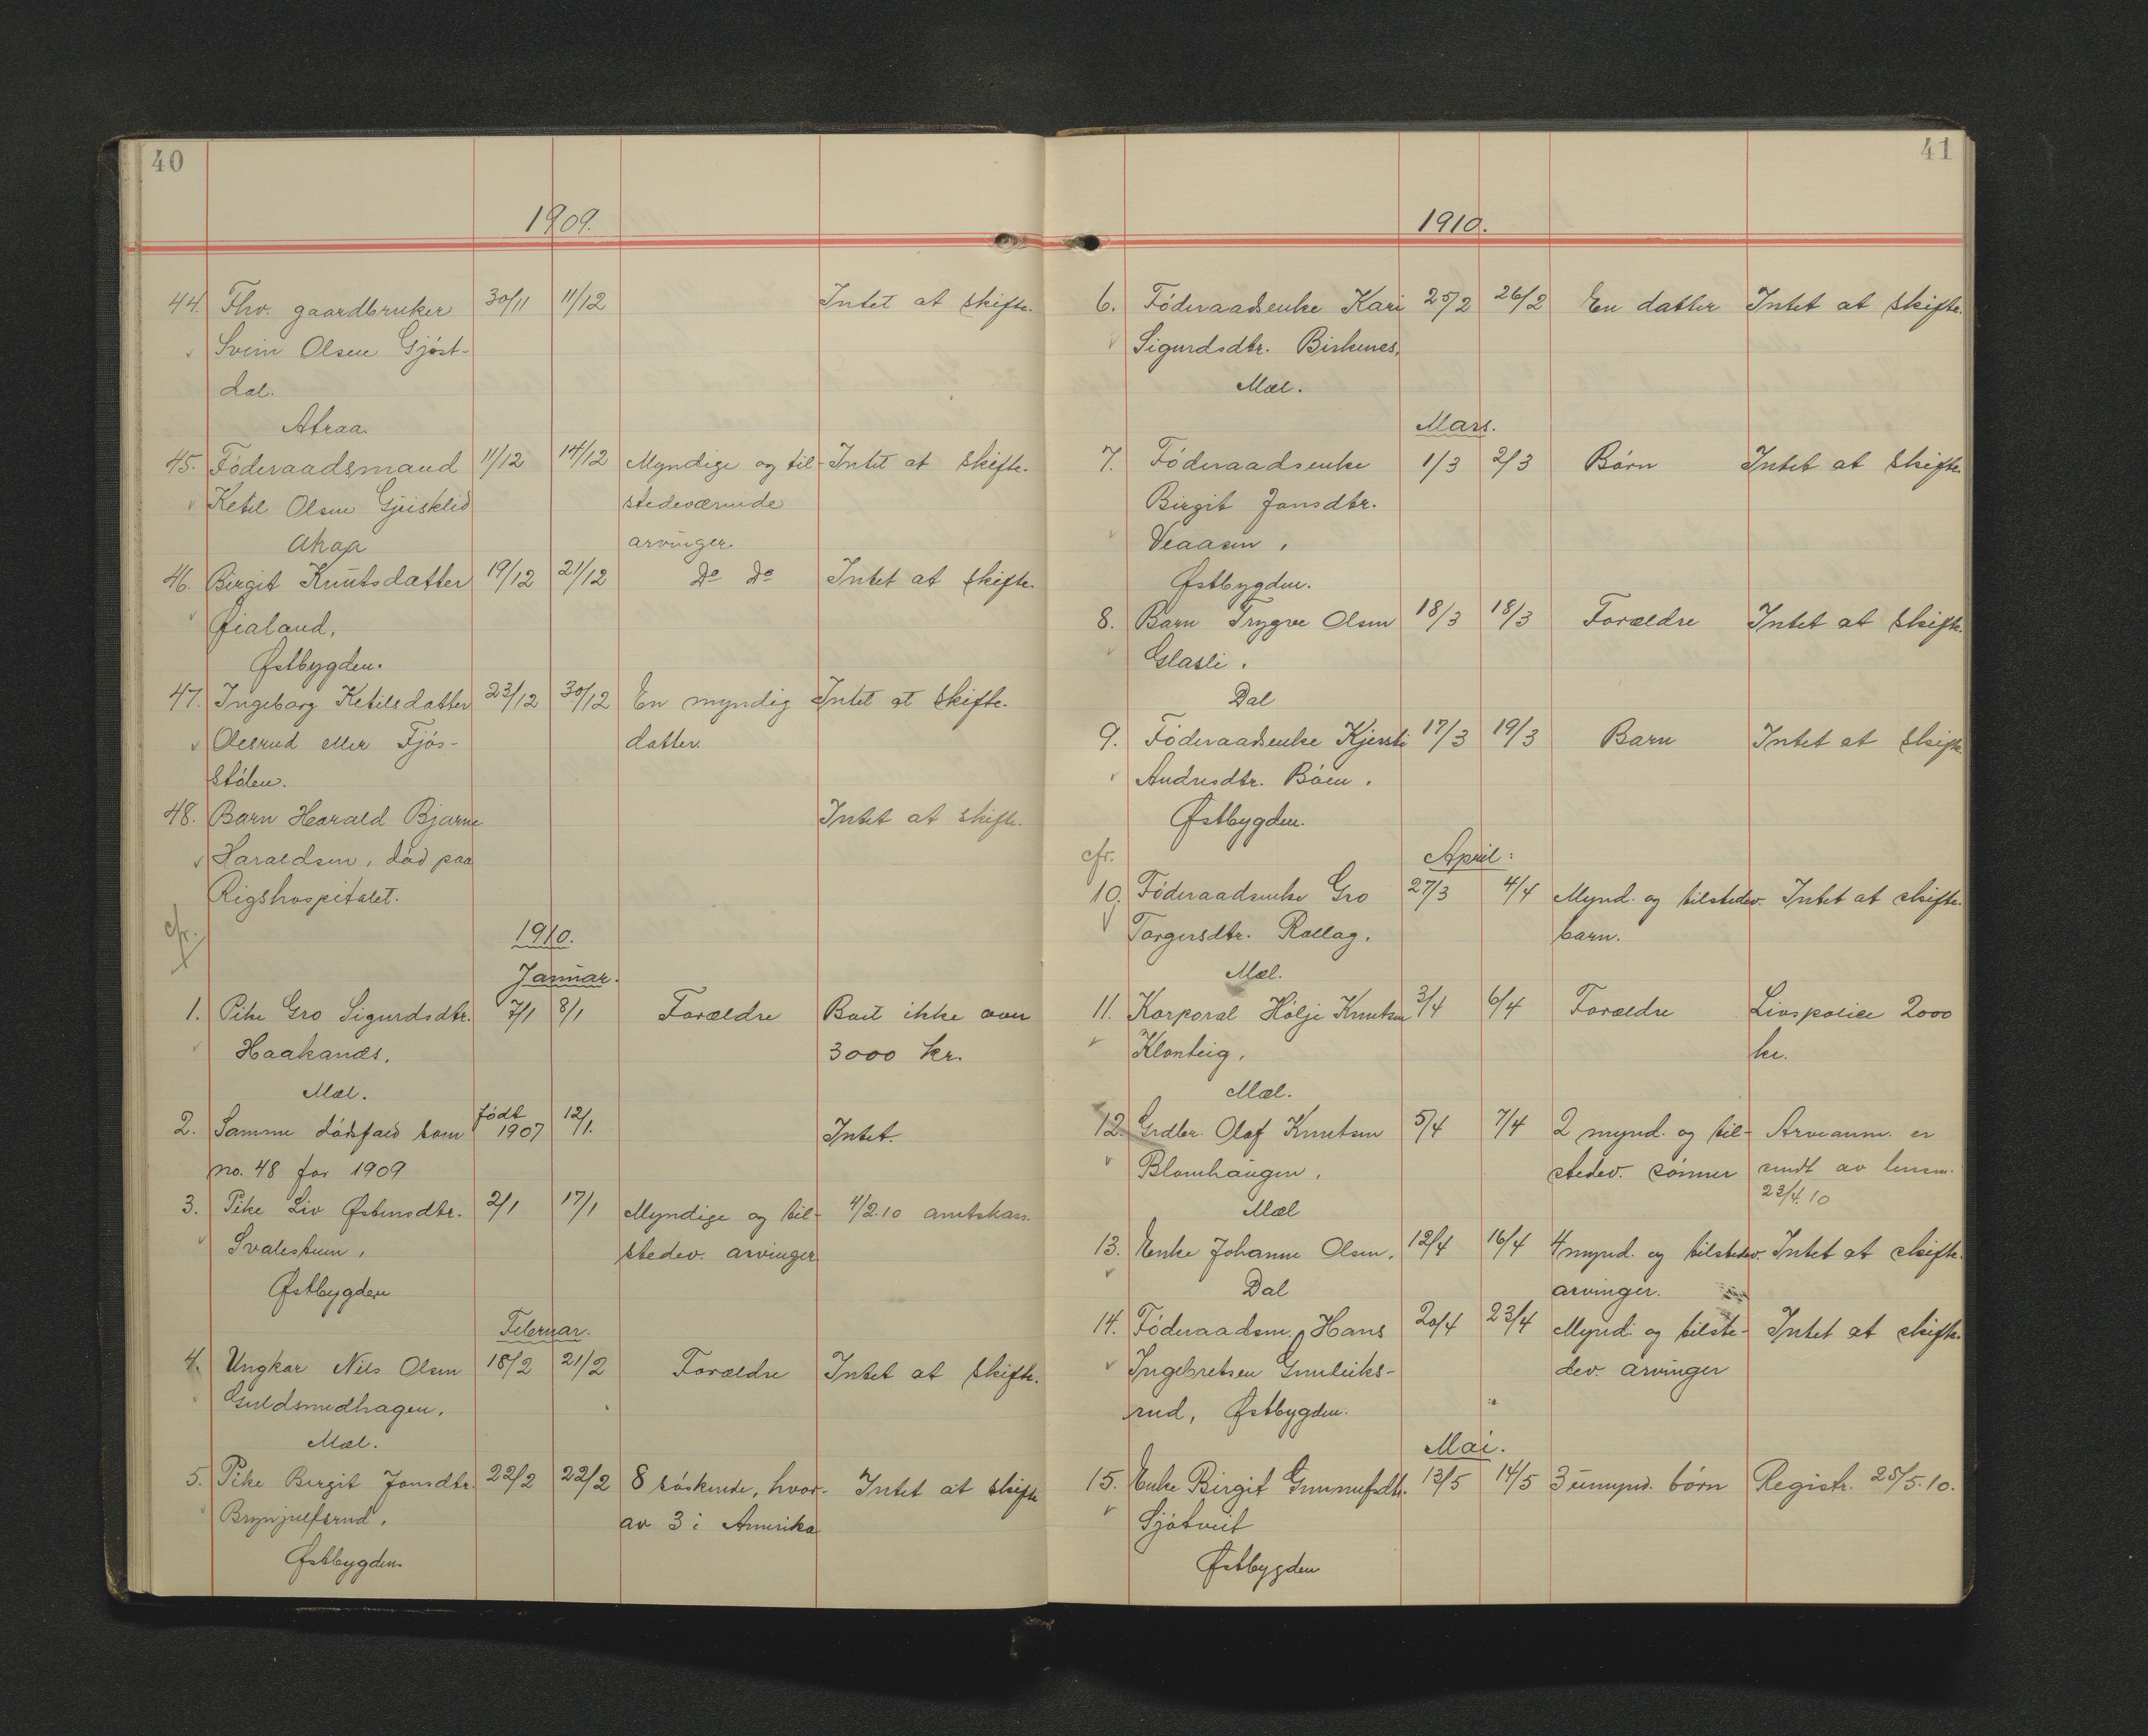 40
1909.
44. Fhv. gaardbruker 30/11 11/12 Intet at skifte.
Svein Olsen Gjøst-
dal.
Atraa.
45. Föderaadsmand 11/12 14/12 Myndige og til- Intet at skifte.
Ketil Olsen Grisklid stedeværende
Atraa arvinger.
46. Birgit Knutsdatter 19/12 21/12 do do Intet at skifte.
Øialand,
Østbygden.
47. Ingeborg Ketilsdatter 23/12 30/12 En myndig Intet at skifte.
Olesrud eller Fjøs- datter.
stölen.
48. Barn Harald Bjarne Intet at skifte.
Haraldsen, död paa
Rigshospitalet.
cfr.
1910.
Januar.
1. Pike Gro Sigurdsdtr. 7/1 8/1 Forældre Boet ikke over
Haakanes, 3000 kr.
Mæl.
2. Samme dødsfald som født 1907 12/1. Intet.
no. 48 for 1909
3. Pike Liv Østensdtr. 2/1 17/1 Myndige og til- 4/2.10 amtskass.
Svalestuen, stedev. arvinger
Østbygden
Februar.
4. Ungkar Nils Olsen 18/2 21/2 Forældre Intet at skifte.
Guldsmedhagen,
Mæl.
5. Pike Birgit Jonsdtr. 22/2 22/2 8 søskende, hvor- Intet at skifte
Brynjulfsrud, av 3 i Amerika
Østbygden.
41
1910.
6. Föderaadsenke Kari 25/2 26/2 En datter Intet at skifte.
Sigurdsdtr. Birkenes,
Mæl.
Mars.
7. Föderaadsenke 1/3 2/3 Börn Intet at skifte
Birgit Jonsdtr.
Veaasen,
Østbygden.
8. Barn Trygve Olsen 18/3 18/3 Forældre Intet at skifte.
Glasli.
Dal
9. Föderaadsenke Kjersti 17/3 19/3 Barn Intet at skifte
Andresdtr. Böen.
Østbygden.
cfr. April:
10. Föderaadsenke Gro 27/3 4/4 Mynd. og tilstedev. Intet at skifte.
Torgersdtr. Rollag. barn.
Mæl.
11. Korporal Hölje Knutsen 3/4 6/4 Forældre Livspolice 2000
Klonteig, kr.
Mæl.
12. Grdbr. Olaf Knutsen 5/4 7/4 2 mynd. og til- Arveanm. er
Blomhaugen, stedev. sönner sendt av lensm.
23/4.10
Mæl
13. Enke Johanne Olsen, 12/4 16/4 4 mynd. og tilstedev. Intet at skifte.
Dal arvinger.
14. Föderaadsm. Hans 20/4 23/4 Mynd. og tilste- Intet at skifte.
Ingebretsen Gunleiks- dev. arvinger
rud, Østbygden.
Mai.
15. Enke Birgit Gunnufsdtr. 13/5 14/5 3 umynd. börn Registr. 25/5.10.
Sjøtveit
Østbygden